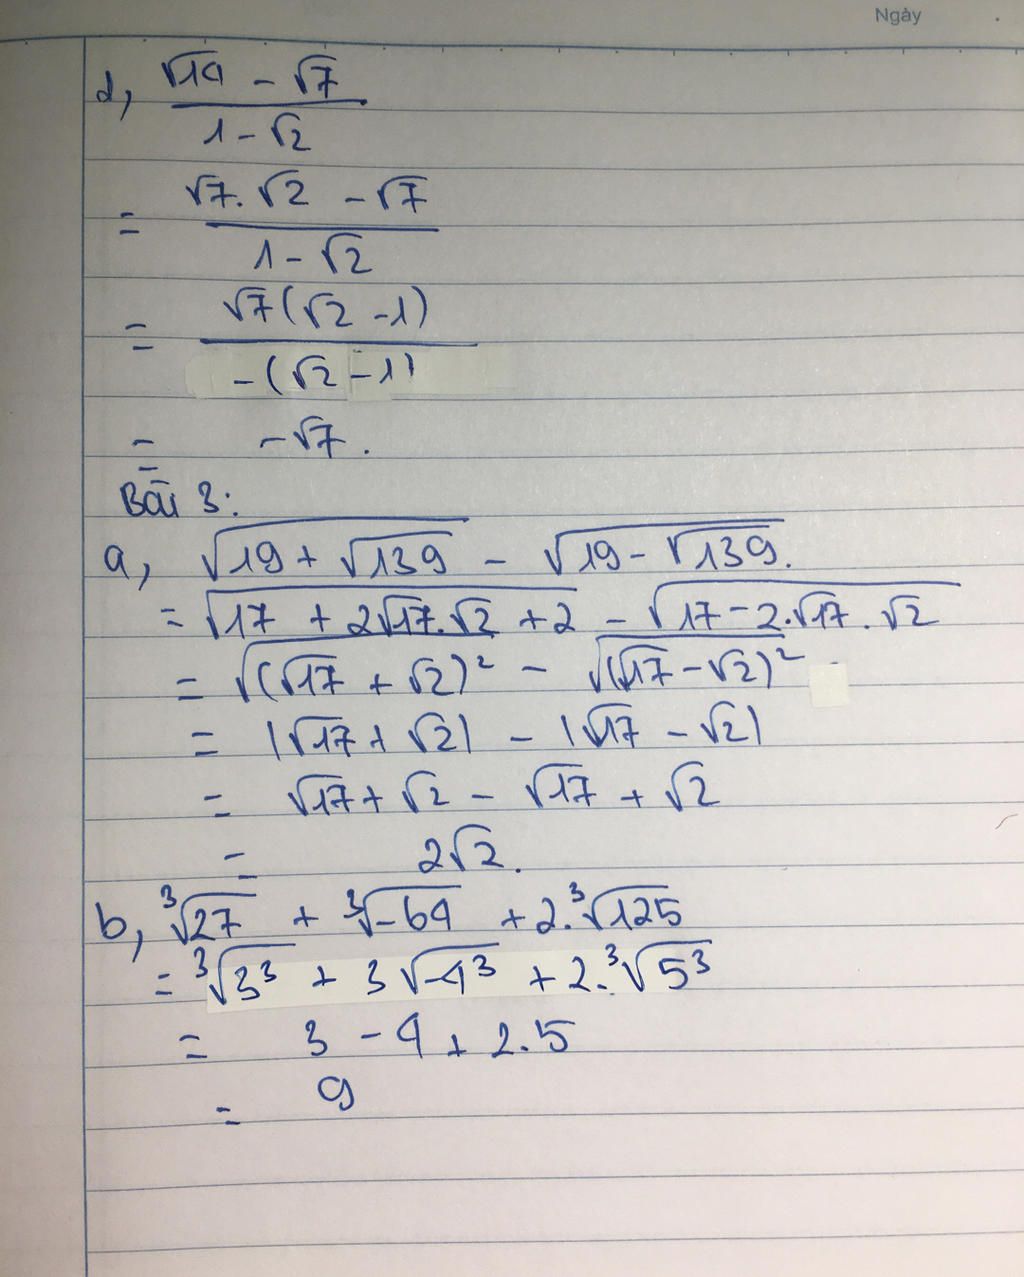 Ngày
d, (√14 - √7)/(1 - √2)
= (√7.√2 - √7)/(1 - √2)
= (√7(√2 - 1))/(-(√2 - 1))
= -√7.
Bài 3:
a, √(19 + √139) - √(19 - √139).
= √(17 + 2√17.√2 + 2) - √(17 - 2.√17.√2
= √((√17 + √2)²) - √((√17 - √2)²)
= |√17 + √2| - |√17 - √2|
= √17 + √2 - √17 + √2
= 2√2.
b, ³√27 + ³√-64 + 2.³√125
= ³√3³ + 3√-4³ + 2.³√5³
= 3 - 4 + 2.5
= 9